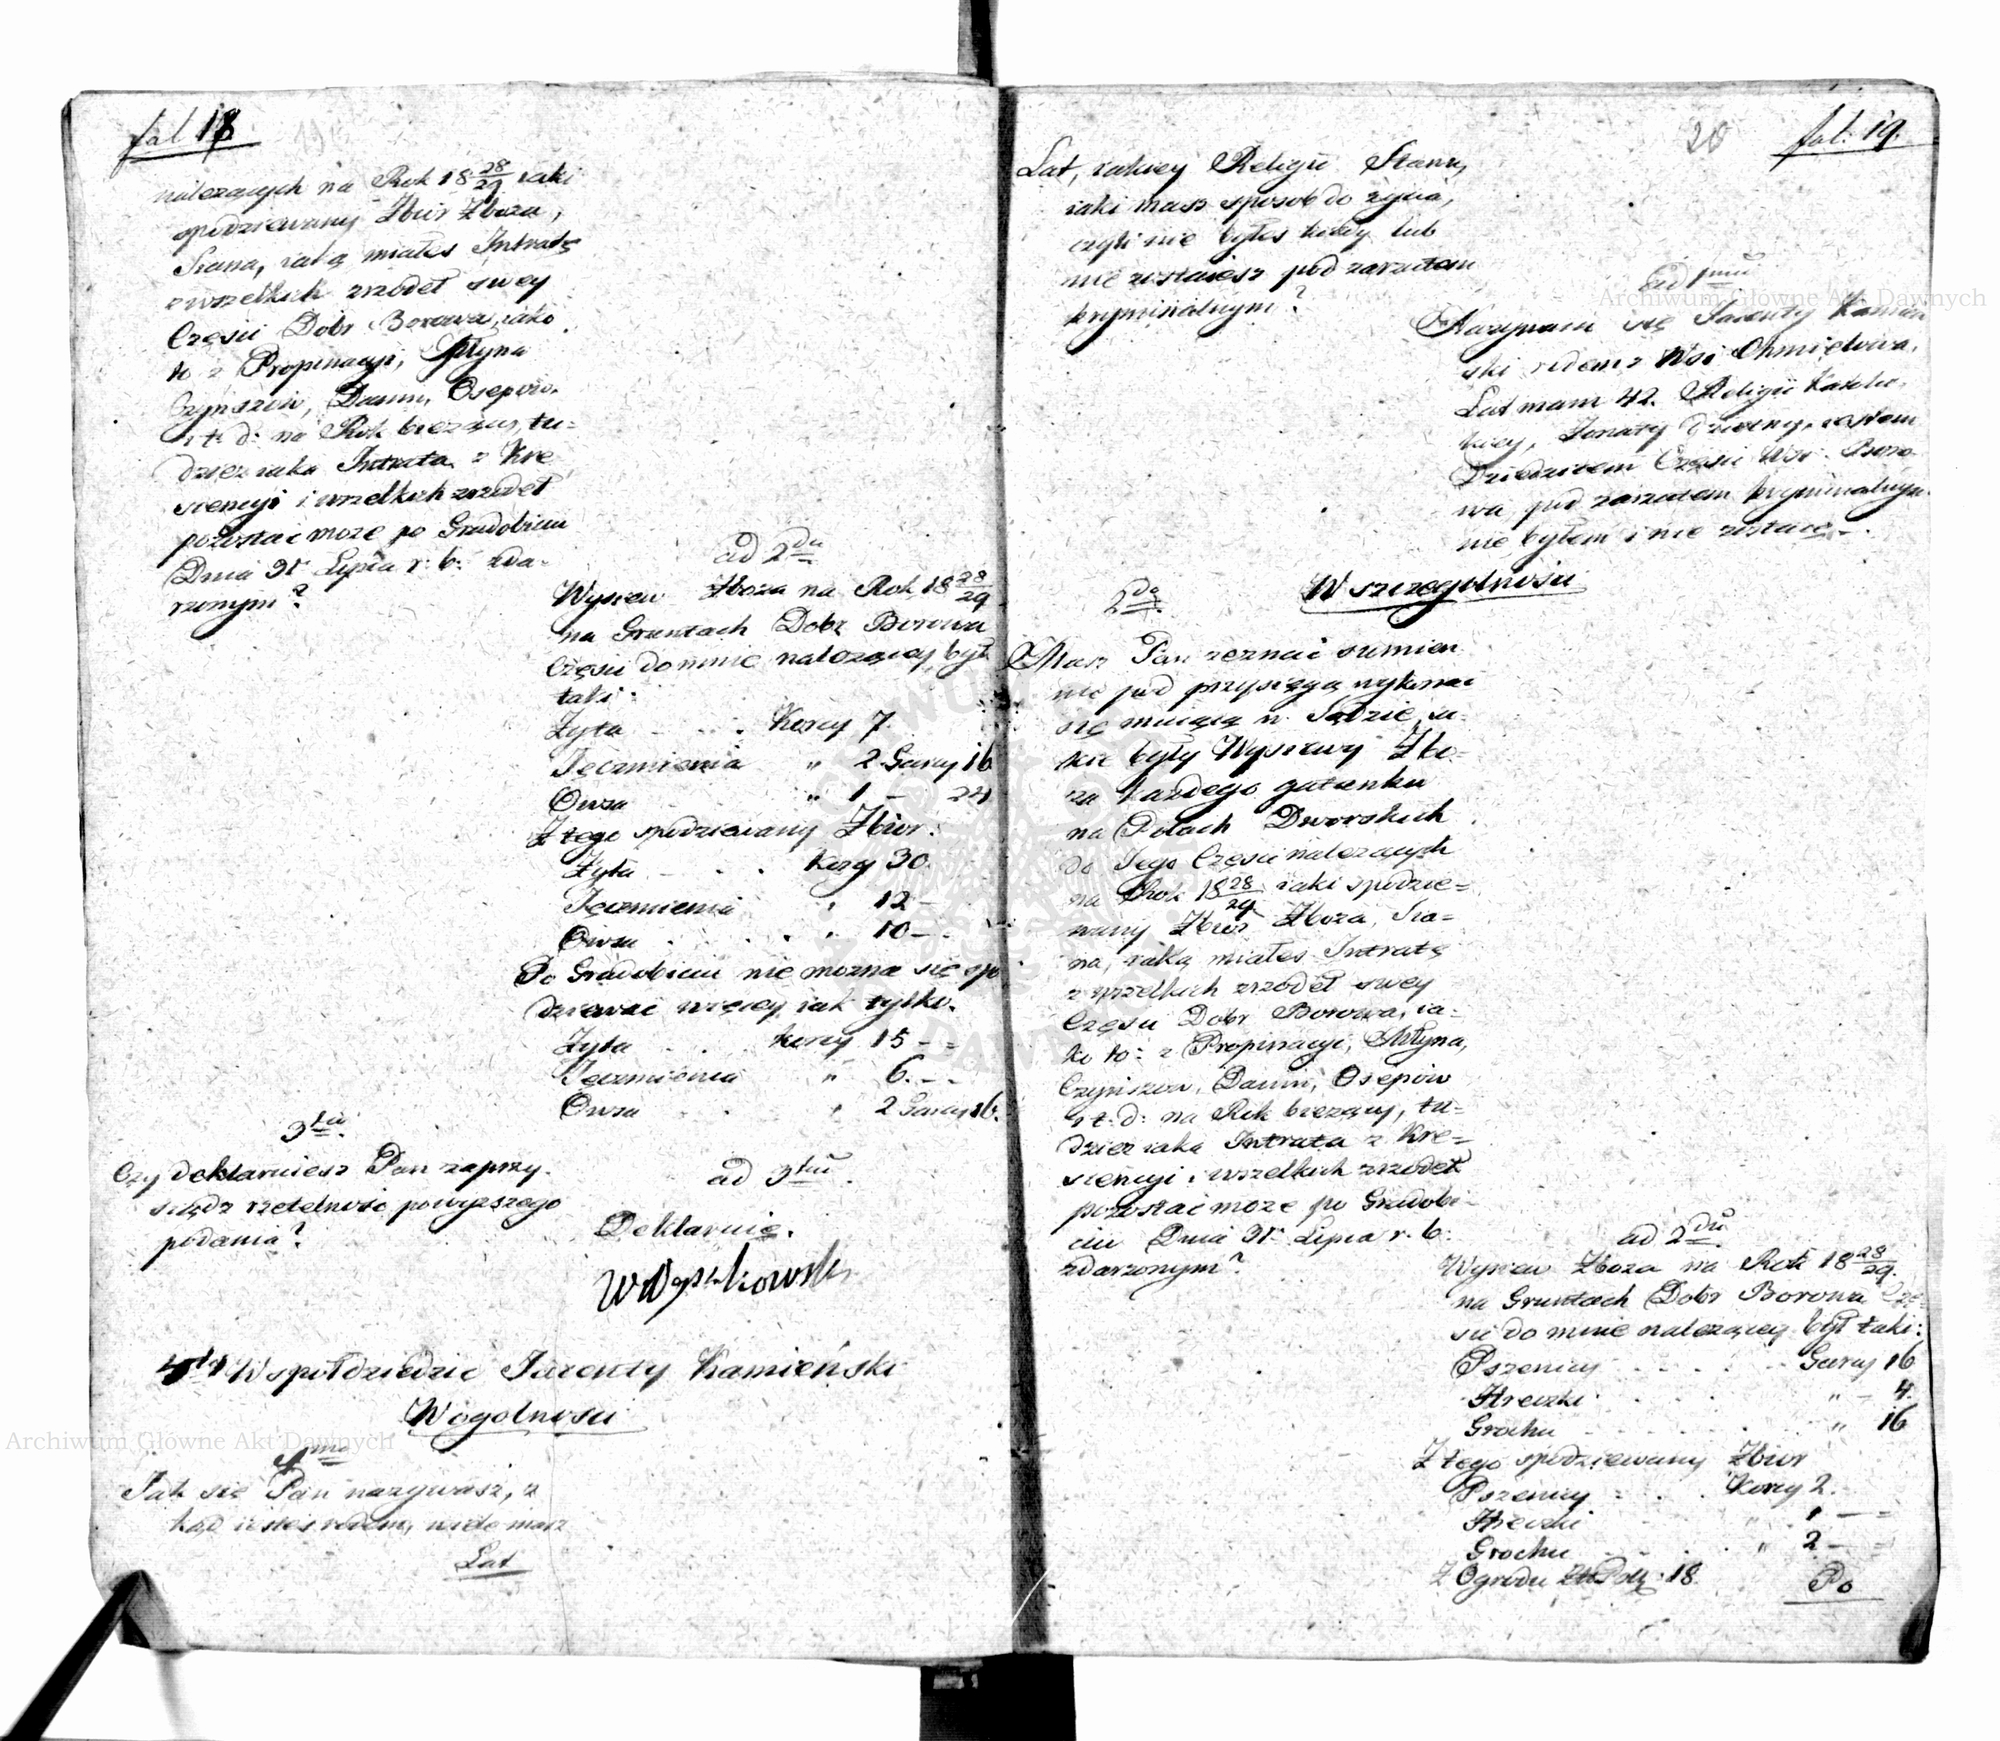 fol 18
należących na Rok 18 28/29 iaki
spodziewany Zbiór Zboza,
Siana, iaką miałes Intratę
z wszelkich zrzodeł swey
Części Dobr Borowa, iako
to z Propinacyi, Młyna
Czynszow, Danin, Osepow
i t: d: na Rok bieząçy, tu=
dziez iaka Intrata z Kre
scencyi i wszelkich zrzodeł
pozostać moze po Gradobiciu
Dnia 31 Lipca r. b: zda-
rzonym?
ad 2du
Wysiew Zboza na Rok 18 28/29
na Gruntach Dobr Borowa
Części do mnie nalezącey był
taki:
Zyta Korcy 7.
Jęczmienia " 2 Garcy 16
Owsa " 1 - 24
Z tego spodziewany Zbior:
Zyta Korcy 30.
Jęczmienia " 12 -
Owsa " 10 -
Po Gradobiciu nie mozna się spo
dziewać więcey iak tylko.
Zyta korcy 15 - =
Jęczmienia " 6. - -
Owsa " 2 Garcy 16.
3tio
Czy deklaruiesz Pan zaprzy-
siądz rzetelność powyzszego
podania?
ad 3tium
Deklaruię.
4ty Wspołdziedzic Jacenty Kamieński
W ogolnosci
1mo
Jak się Pan nazywasz, z
kąd iesteś rodem, wiele masz
Lat
20
fol: 19.
Lat, iakiey Religii Stanu,
iaki masz sposob do zycia,
czyli nie byłes kiedy lub
nie zostaiesz pod zarzutem
kryminalnym?
ad 1mum
Nazywam się Jacenty Kamien
ski rodem z Wsi Chmielowa,
Lat mam 42. Religii Katolic-
kiey, Zonaty dzietny, iestem
Dziedzicem Części Wsi Boro-
wa pod zarzutem kryminalnym
nie byłem i nie zostaię -.
W szczegolnosci
2do
Masz Pan zeznać sumien
nie pod przysięgą wykonać
się maiącą w Sądzie, ia-
kie były Wysiewy Zbo-
za kazdego gatunku
na Polach Dworskich
do Jego Części nalezących
na Rok 18 28/29 iaki spodzie=
wany Zbior Zboza, Sia=
na, iaką miałes Intratę
z wszelkich zrzodeł swey
Części Dobr Borowa, ia=
ko to: z Propinacyi, Młyna,
Czynszow, Danin, Osepow
i t: d: na Rok bieząçy, tu=
dziez iaka Intrata z Kre=
scencyi i wszelkich zrzodeł
pozostać moze po Gradobi-
ciu Dnia 31 Lipca r. b:
zdarzonym?
ad 2du
Wysiew Zboza na Rok 18 28/29.
na Gruntach Dobr Borowa Czę-
sci do mnie nalezącey był taki:
Pszenicy Garcy 16
Hreczki " - 4.
Grochu " 16
Z tego spodziewany Zbior
Pszenicy Korcy 2.
Hreczki " 1 - =
Grochu " 2 - =
Z Ogrodu 18.
Po
Archiwum Główne Akt Dawnych
Archiwum Główne Akt Dawnych